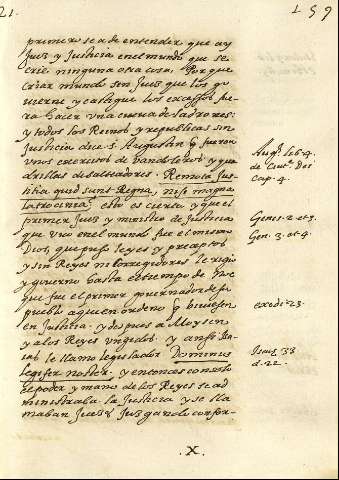 21.
159
primero se a de entender que ay
Juez y Justicia en el mundo que se
crie ninguna otra cosa, Porque
criar mundo sin Juez que los go
uierne y castigue los excessos fue
ra hacer vna cueua de ladrones:
y todos los Reinos y republicas sin
Justicia dice S. Augustin q̃ fueron
vnos exercitos de vandoleros y qua
drillas de salteadores. Remota Jus-
titia quid sunt Regna, nisi magna
latrocinia? esto es cierto, y que el
primer Juez y ministro de Justicia
que vuo en el mundo fue el mismo
Dios, que puso leyes y preceptos
y sin Reyes ni Corregidores le rigio
y gouerno hasta el tiempo de
que fue el primer gouernador de su
pueblo a quien ordeno q̃ biuiesen
en Justicia. y despues a Moysen
y a los Reyes vngidos. y ansi
le llamo legislador. Dominus
legifer noster, y entonces
el poder y mano de los Reyes se ad
ministraba la Justicia y se lla
maban Juezes Juzgando confor-
Aug. lib. 4.
de Ciuit. Dei
cap. 4.
Genes. 2. et 3.
Gen. 3. et 4.
exodi 23.
Isaiæ 33
d. 22.
.X.